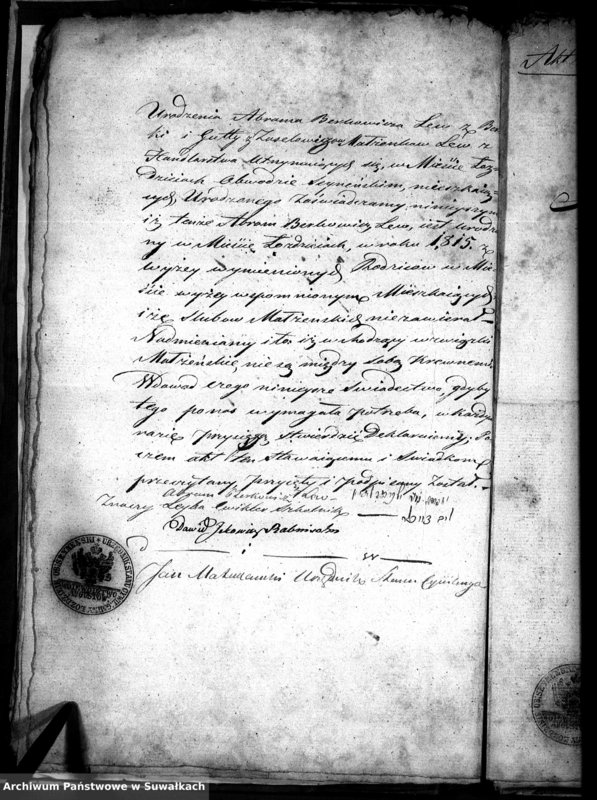 Akt
Urodzenia Abrama Berkowicza Lew z Ber
ki i Gutty z Zuselowiczow Małżonkow Lew z
Handlarstwa Utrzymuiących się, w Mieście Łoz-
dzieiach Obwodzie Seynenskim, mieszkaią-
cych Urodzonego Zaświadczamy ninieyszym
iż tenże Abram Berkowicz Lew, iest urodzo
ny w Mieście Łozdzieiach, w roku 1815. z
wyżey wymienionych Rodzicow w Mie
ście wyżey wspomnionym Mieszkaiących
i że slubow Małżenskich niezawierał
Nadmieniamy i to iż wchodzący w związki
Małżeńskie nie są między sobą Krewnemi
Wdowod czego ninieysze Swiadectwo, gdyby
tego po nas wymagała potrzeba, w każdym
razie przysięgą stwierdzić Deklaruiemy. Po
czem akt ten Stawaiącemu i Swiadkom
przeczytany, przyięty i podpisany został.-
Abram Berkowicz Lew
Znaczy Leyba Cwikler Szkolnik
Dawid Jekowicz Rabin
Jan Matuszewski Urzędnik Stanu Cywilnego
Archiwum Państwowe w Suwałkach